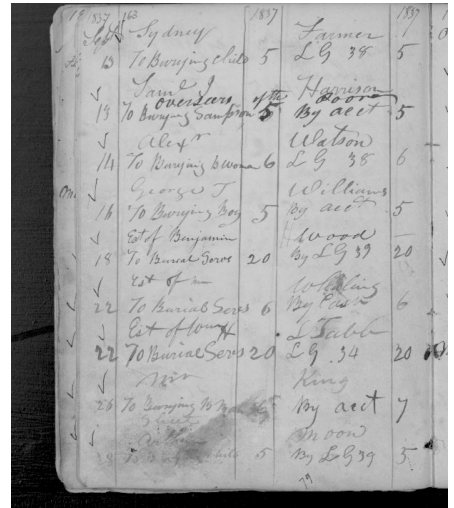 1837 163 1837 1837
Sept Sydney Farmer
13 To Burying child 5 L G 38 5
Saml J Harrison
overseers of the poor
13 To Burying Sampson 5 By acct 5
Alexr Watson
14 To Burying B woman 6 L G 38 6
George T Williams
16 To Burying Boy 5 By acct 5
Est of Benjamin Wood
18 To Burial Servs 20 By L G 39 20
Est of
22 To Burial Servs 6 By Cash 6
Est of L Tabb
22 To Burial Servs 20 L G 34 20
King
26 To Burying B By acct 7
Moon
28 To child 5 By L G 39 5
79